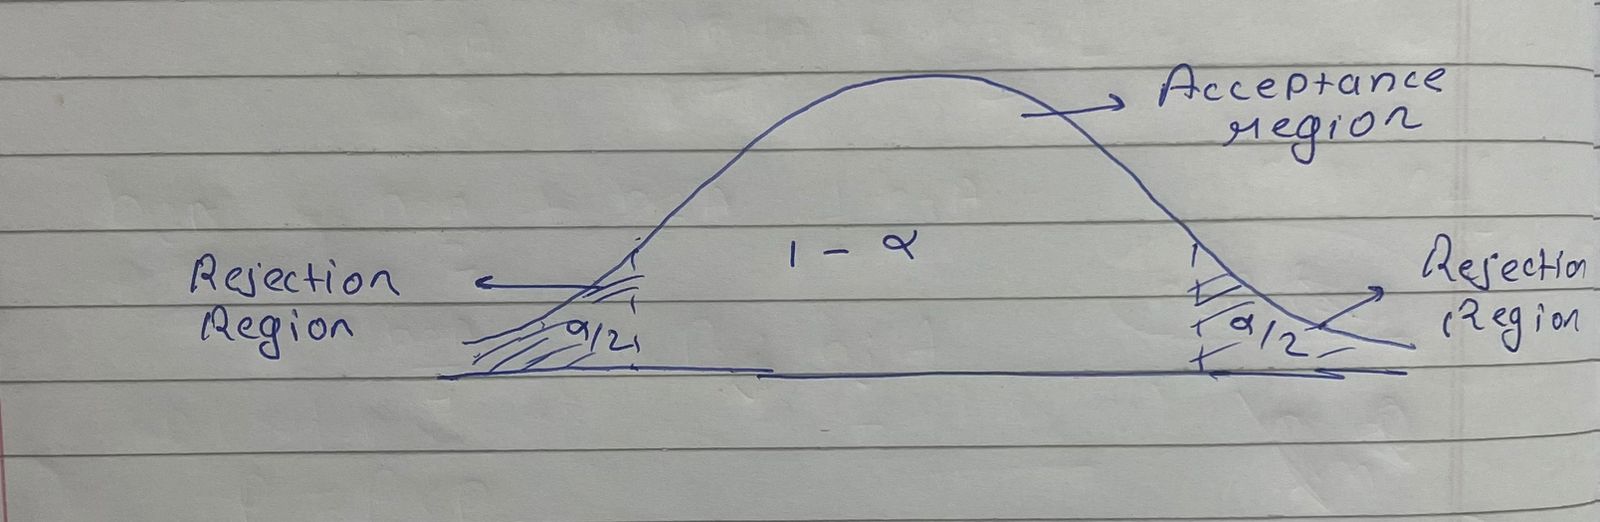 Acceptance
region
1 - α
Rejection
Region
α/2
α/2
Rejection
Region